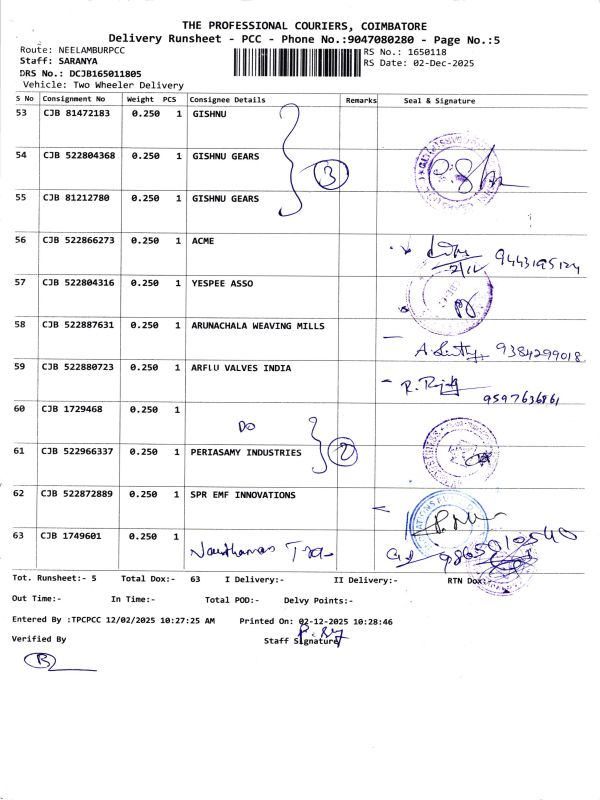 THE PROFESSIONAL COURIERS, COIMBATORE
Delivery Runsheet - PCC - Phone No.:9047080280 - Page No.:5
Route: NEELAMBURPCC
RS No.: 1650118
Staff: SARANYA
RS Date: 02-Dec-2025
DRS No.: DCJB165011805
Vehicle: Two Wheeler Delivery
S No Consignment No Weight PCS Consignee Details Remarks Seal & Signature
53 CJB 81472183 0.250 1 GISHNU
54 CJB 522804368 0.250 1 GISHNU GEARS
3
55 CJB 81212780 0.250 1 GISHNU GEARS
56 CJB 522866273 0.250 1 ACME
2/12
57 CJB 522804316 0.250 1 YESPEE ASSO
58 CJB 522887631 0.250 1 ARUNACHALA WEAVING MILLS
9384299018
59 CJB 522880723 0.250 1 ARFLU VALVES INDIA
60 CJB 1729468 0.250 1
Do
61 CJB 522966337 0.250 1 PERIASAMY INDUSTRIES
2
62 CJB 522872889 0.250 1 SPR EMF INNOVATIONS
63 CJB 1749601 0.250 1
9865010540
Tot. Runsheet:- 5 Total Dox:- 63 I Delivery:- II Delivery:- RTN Dox:-
Out Time:- In Time:- Total POD:- Delvy Points:-
Entered By :TPCPCC 12/02/2025 10:27:25 AM Printed On: 02-12-2025 10:28:46
Verified By Staff Signature